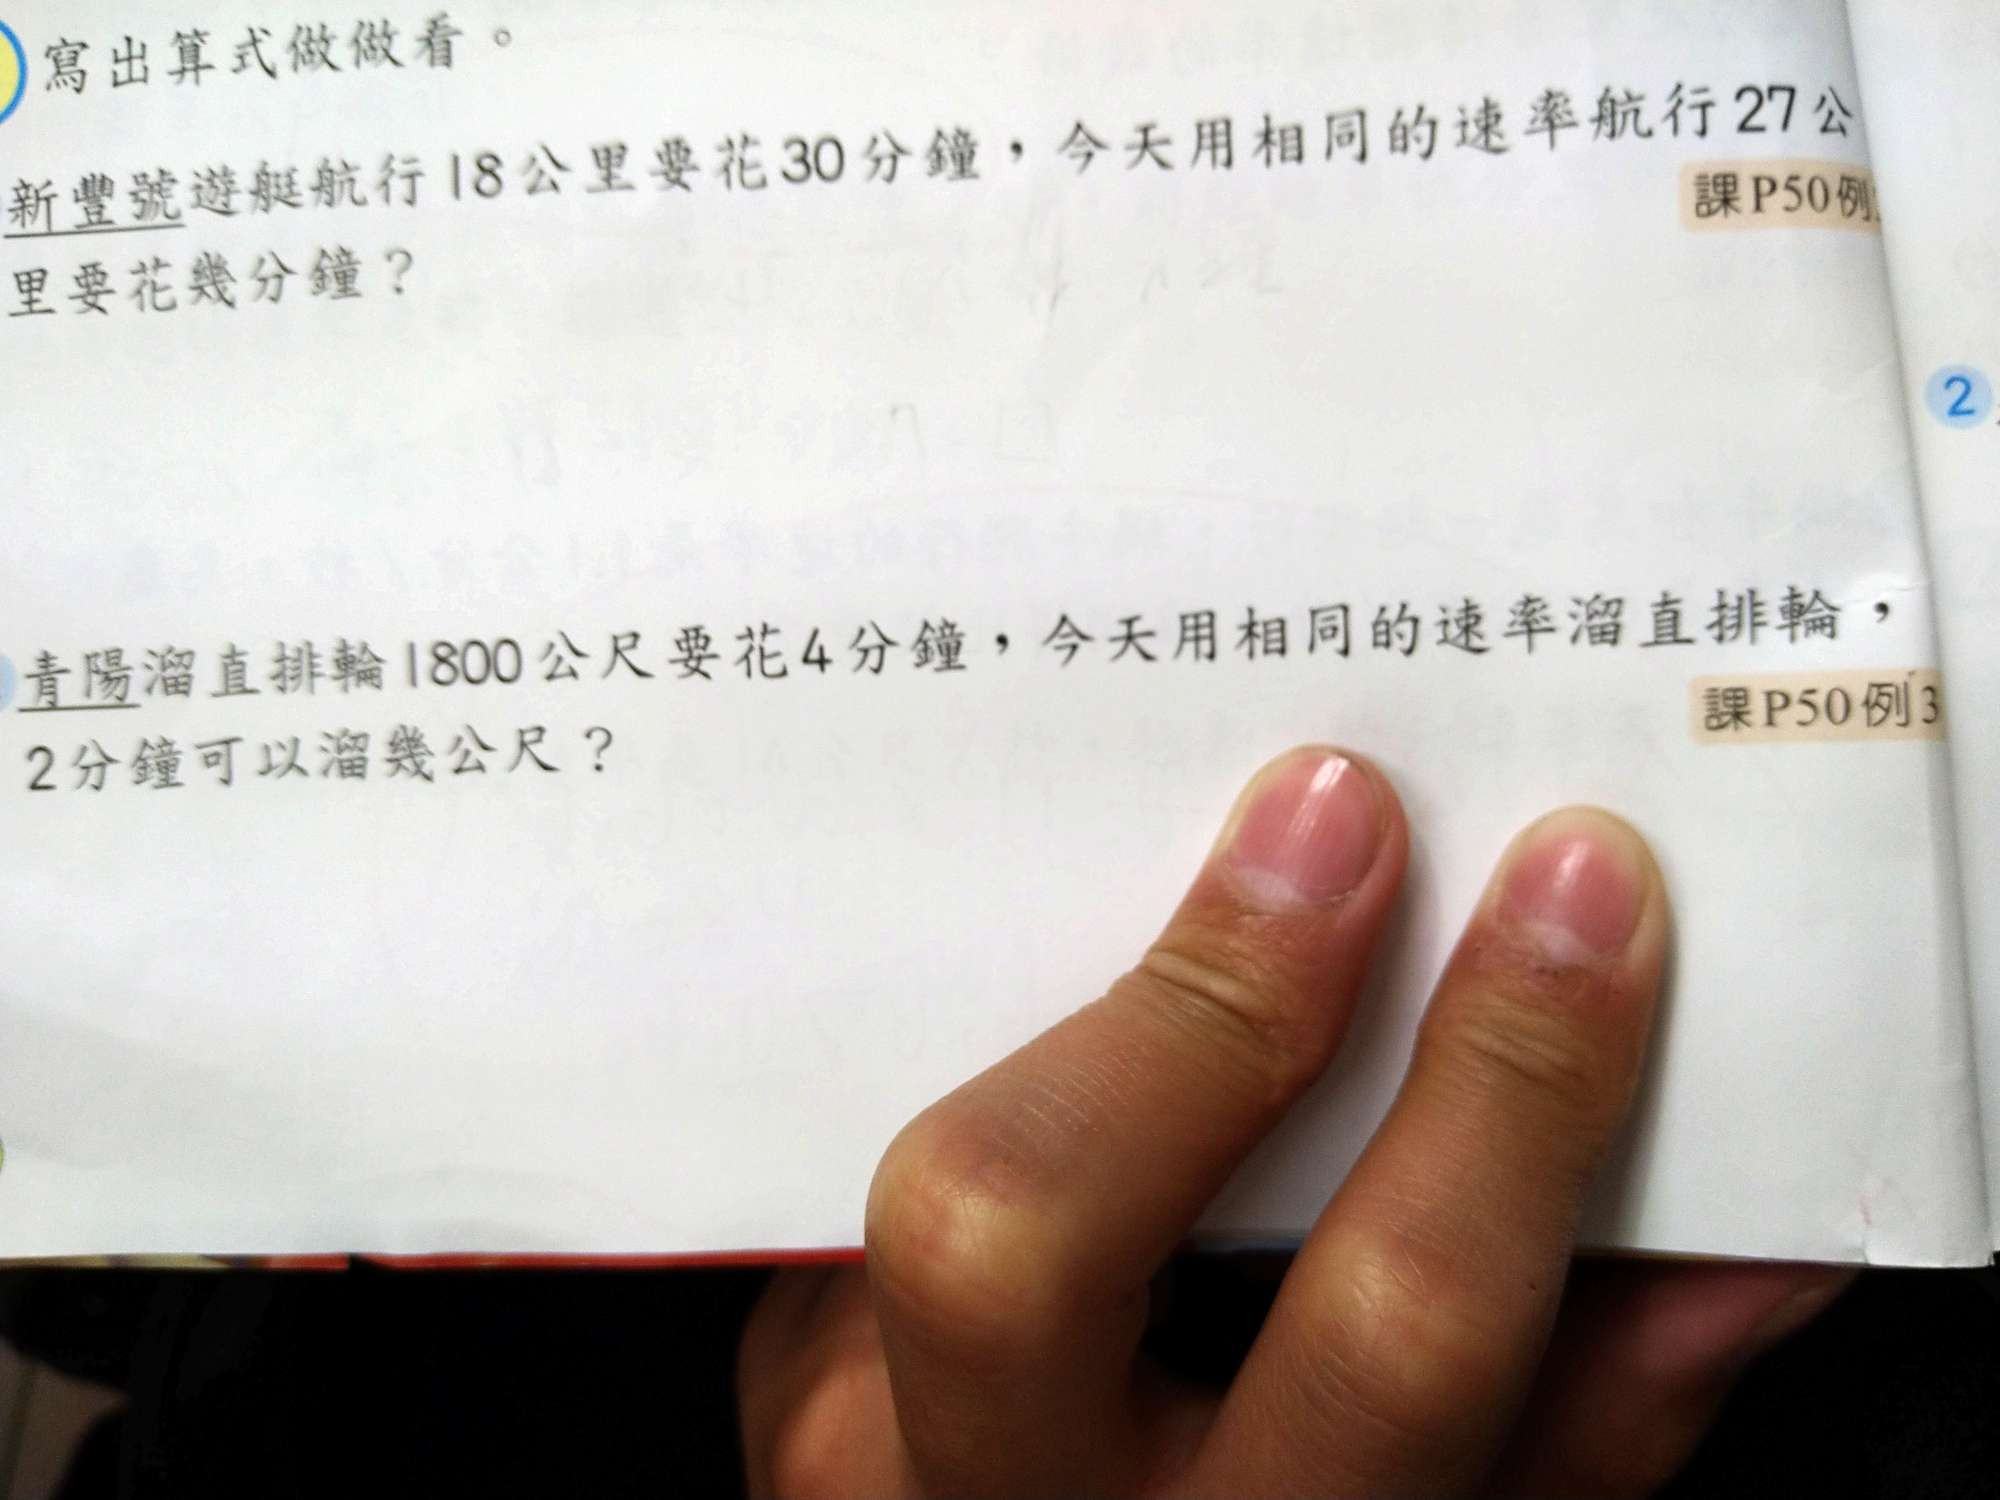 寫出算式做做看。
新豐號遊艇航行18公里要花30分鐘，今天用相同的速率航行27公
課P50例
里要花幾分鐘？
2
青陽溜直排輪1800公尺要花4分鐘，今天用相同的速率溜直排輪，
課P50例3
2分鐘可以溜幾公尺？